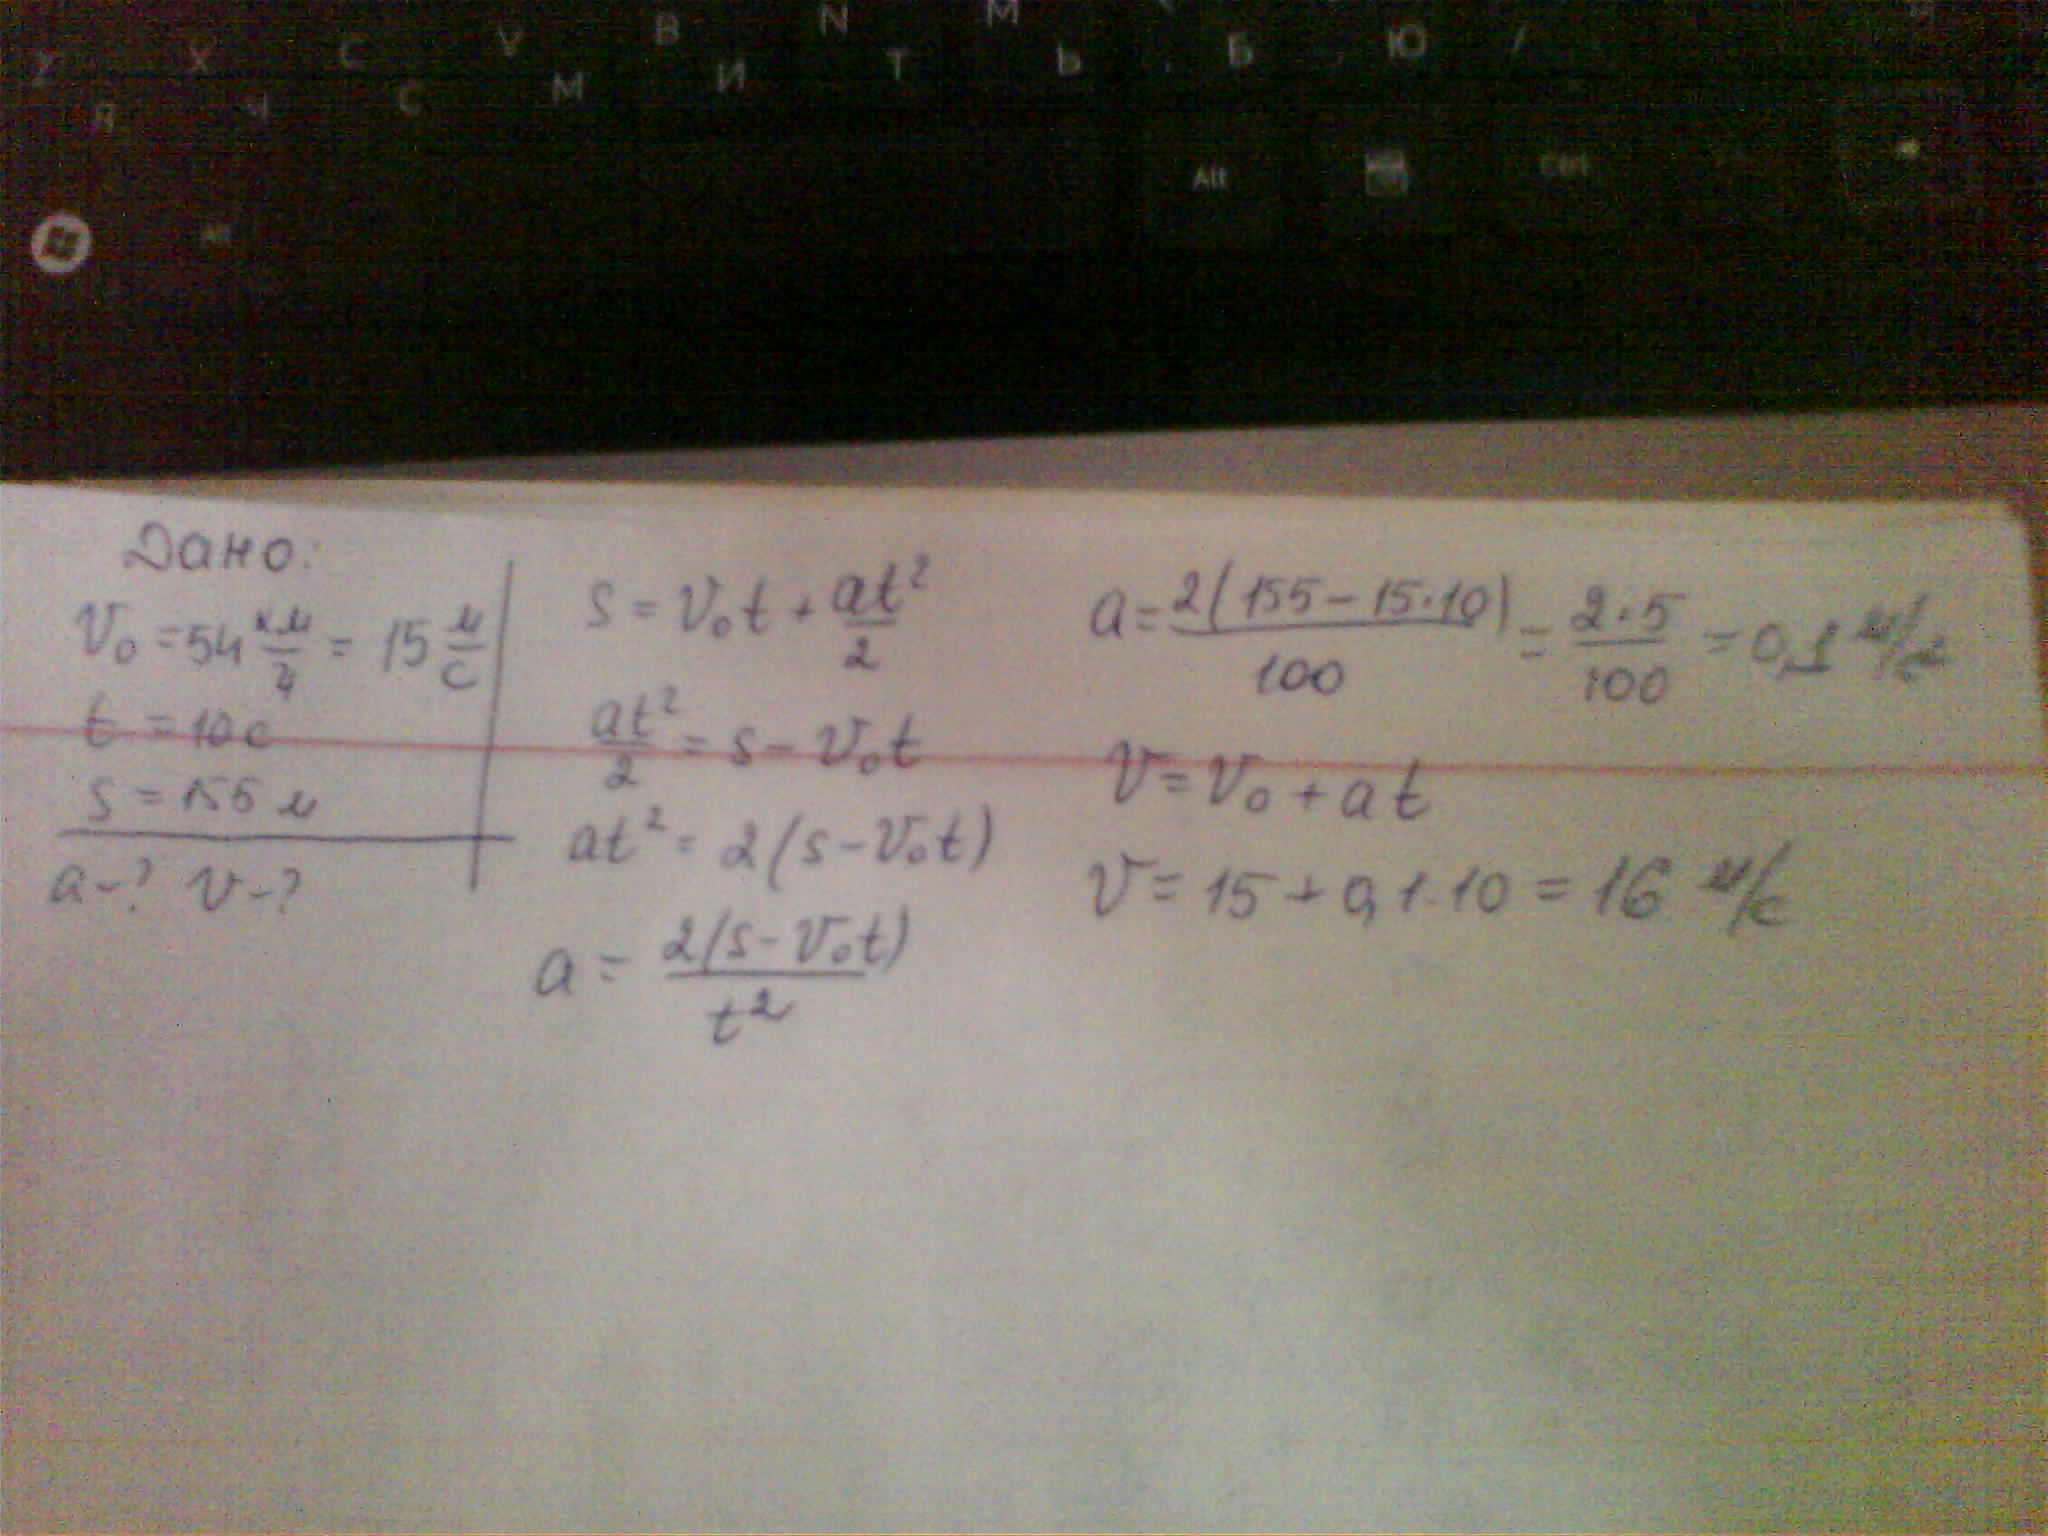 Z X C V B N M
Я Ч С М И Т Ь , Б . Ю /
Alt Ctrl
Alt
Дано:
V₀ = 54 км/ч = 15 м/с
t = 10 с
S = 155 м
a - ? V - ?
S = V₀t + at²/2
at²/2 = S - V₀t
at² = 2(S - V₀t)
a = 2(S - V₀t)/t²
a = 2(155 - 15·10)/100 = 2·5/100 = 0,1 м/с²
V = V₀ + at
V = 15 + 0,1·10 = 16 м/с